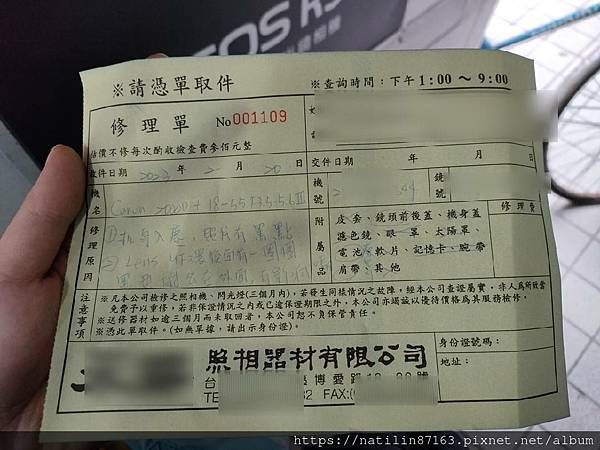 EOS R
※請憑單取件
※查詢時間：下午1:00～9:00
修理單 No 001109
估價不修每次酌收檢查費參佰元整
收件日期 2023年2月20日
交件日期 年 月 日
機名 Canon 2000D + 18-55 F3.5-5.6 III
機號
鏡號
修理原因
附屬品
皮套、鏡頭前後蓋、機身蓋
濾色鏡、眼罩、太陽罩、
電池、軟片、記憶卡、腕帶
肩帶、其他
修理費
注意事項
※凡本公司檢修之照相機、閃光燈(三個月內)，若發生同樣情況之故障，經本公司查證屬實，非人為所致當
免費予以重修，若非保證情況之內或已逾保證期限之外，本公司亦竭誠以優待價格為其服務檢修。
※送修器材如逾三個月而未取回者，本公司恕不負保管責任。
※憑此單取件。(如無單據，請出示身份證)。
照相器材有限公司
身份證號碼：
地址：
博愛路
號
FAX:
https://natilin87163.pixnet.net/album